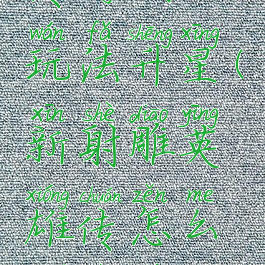 wán fǎ shēng xīng
玩法升星(
xīn shè diāo yīng
新射雕英
xióng chuán zěn me
雄传怎么